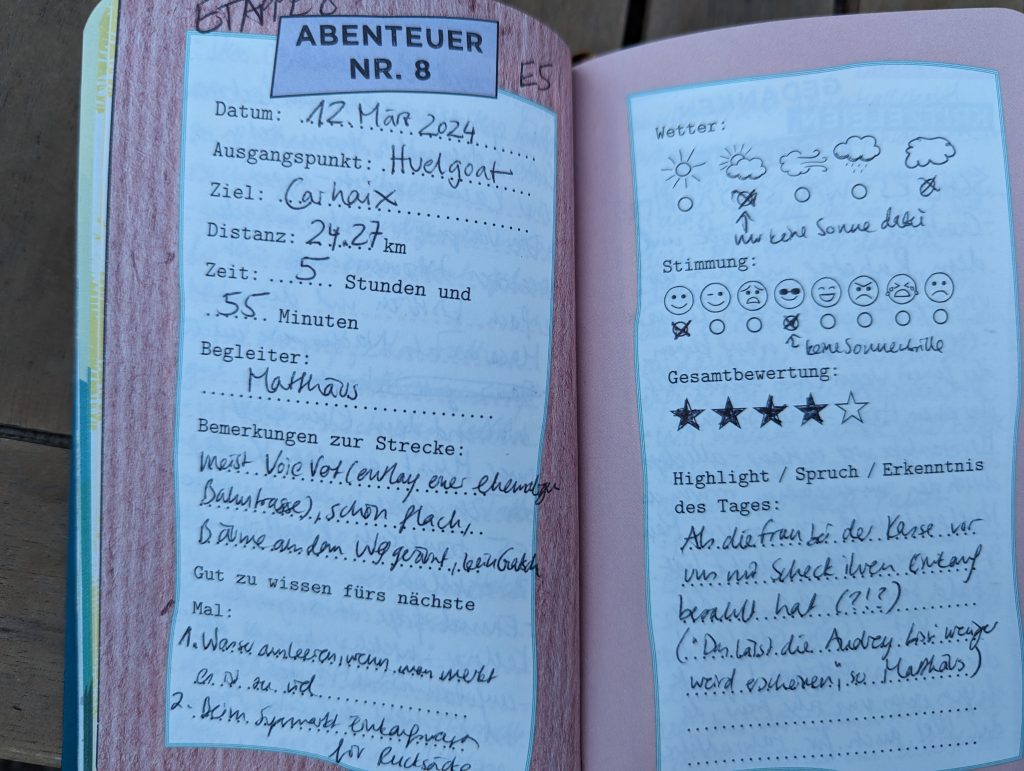 ETAPPE 8
ABENTEUER
NR. 8
E5
Datum: 12. März 2024
Ausgangspunkt: Huelgoat
Ziel: Carhaix
Distanz: 24.27 km
Zeit: 5 Stunden und
55 Minuten
Begleiter:
Matthäus
Bemerkungen zur Strecke:
meist Voie Vert (entlang einer ehemaligen
Bahntrasse), schön flach,
Bäume aus dem Weg geräumt, kein Gatsch
Gut zu wissen fürs nächste
Mal:
1. Wasser ausleeren, wenn man merkt
es ist zu viel
2. Beim Supermarkt Einkaufswagen
für Rucksäcke
Wetter:
nur keine Sonne dabei
Stimmung:
keine Sonnenbrille
Gesamtbewertung:
Highlight / Spruch / Erkenntnis
des Tages:
Als die Frau bei der Kasse vor
uns mit Scheck ihren Einkauf
bezahlt hat (?!?)
("Das lässt die Audrey weniger
weird erscheinen", so Matthäus)